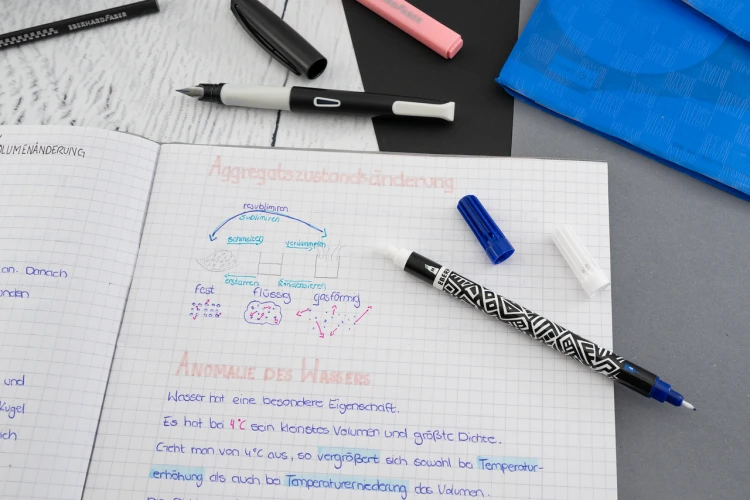 EBERHARD FABER
EBERHARD FABER
VOLUMENÄNDERUNG
an. Danach
und
ich
Aggregatszustandsänderung
resublimiren
sublimiren
schmelzen
verdampfen
erstarren
kondensieren
fest flüssig gasförmig
ANOMALIE DES WASSERS
Wasser hat eine besondere Eigenschaft.
Es hat bei 4°C sein kleinstes Volumen und größte Dichte.
Geht man von 4°C aus, so vergrößert sich sowohl bei Temperatur-
erhöhung als auch bei Temperaturerniederung das Volumen.
EBERH